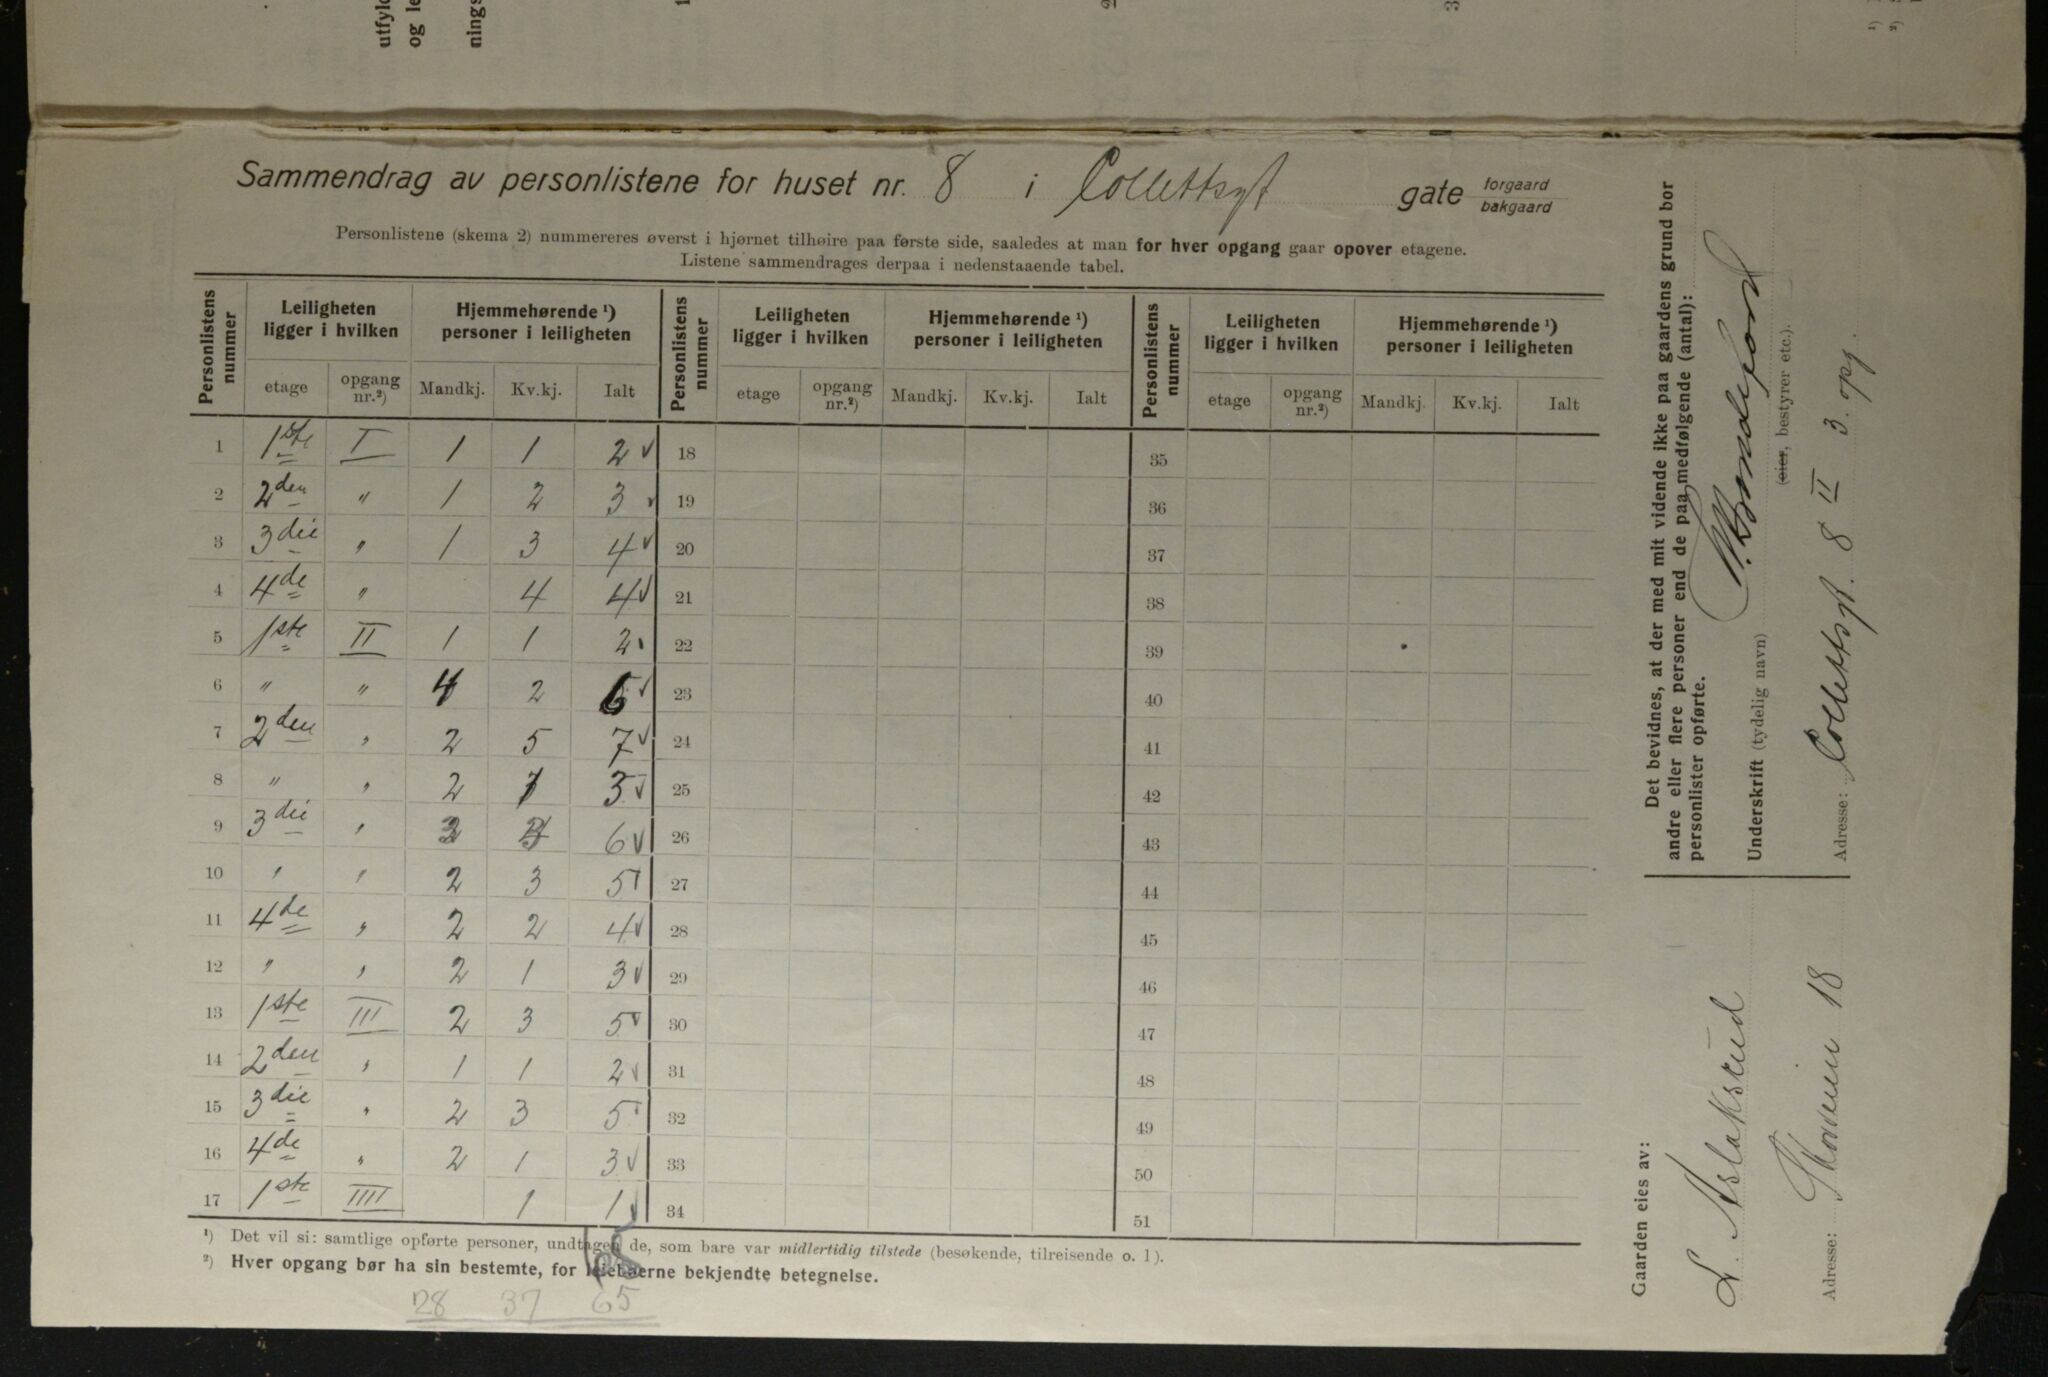 utfyld
og le
nings
1
2
3
¹)
²)
Sammendrag av personlistene for huset nr. 8 i Collettsgt gate forgaard
bakgaard
Personlistene (skema 2) nummereres øverst i hjørnet tilhøire paa første side, saaledes at man for hver opgang gaar opover etagene.
Listene sammendrages derpaa i nedenstaaende tabel.
Personlistens nummer | Leiligheten ligger i hvilken | Hjemmehørende ¹) personer i leiligheten | Personlistens nummer | Leiligheten ligger i hvilken | Hjemmehørende ¹) personer i leiligheten | Personlistens nummer | Leiligheten ligger i hvilken | Hjemmehørende ¹) personer i leiligheten
etage | opgang nr.²) | Mandkj. | Kv.kj. | Ialt | etage | opgang nr.²) | Mandkj. | Kv.kj. | Ialt | etage | opgang nr.²) | Mandkj. | Kv.kj. | Ialt
1 1ste I 1 1 2 ✓ 18 35
2 2den " 1 2 3 ✓ 19 36
3 3die " 1 3 4 ✓ 20 37
4 4de " 4 4 ✓ 21 38
5 1ste II 1 1 2 22 39
6 " " 4 2 6 ✓ 23 40
7 2den " 2 5 7 ✓ 24 41
8 " " 2 1 3 ✓ 25 42
9 3die " 3 3 6 ✓ 26 43
10 " " 2 3 5 ✓ 27 44
11 4de " 2 2 4 ✓ 28 45
12 " " 2 1 3 ✓ 29 46
13 1ste III 2 3 5 ✓ 30 47
14 2den " 1 1 2 ✓ 31 48
15 3die " 2 3 5 ✓ 32 49
16 4de " 2 1 3 ✓ 33 50
17 1ste IIII 1 1 ✓ 34 51
¹) Det vil si: samtlige opførte personer, undtagen de, som bare var midlertidig tilstede (besøkende, tilreisende o. l).
²) Hver opgang bør ha sin bestemte, for leieboerne bekjendte betegnelse.
28 37 65
Det bevidnes, at der med mit vidende ikke paa gaardens grund bor
andre eller flere personer end de paa medfølgende (antal):
personlister opførte.
Underskrift (tydelig navn)
(eier, bestyrer etc.).
Adresse: Collettsgt. 8 II 3. opg.
Gaarden eies av:
L. Aslaksrud
Adresse: 18